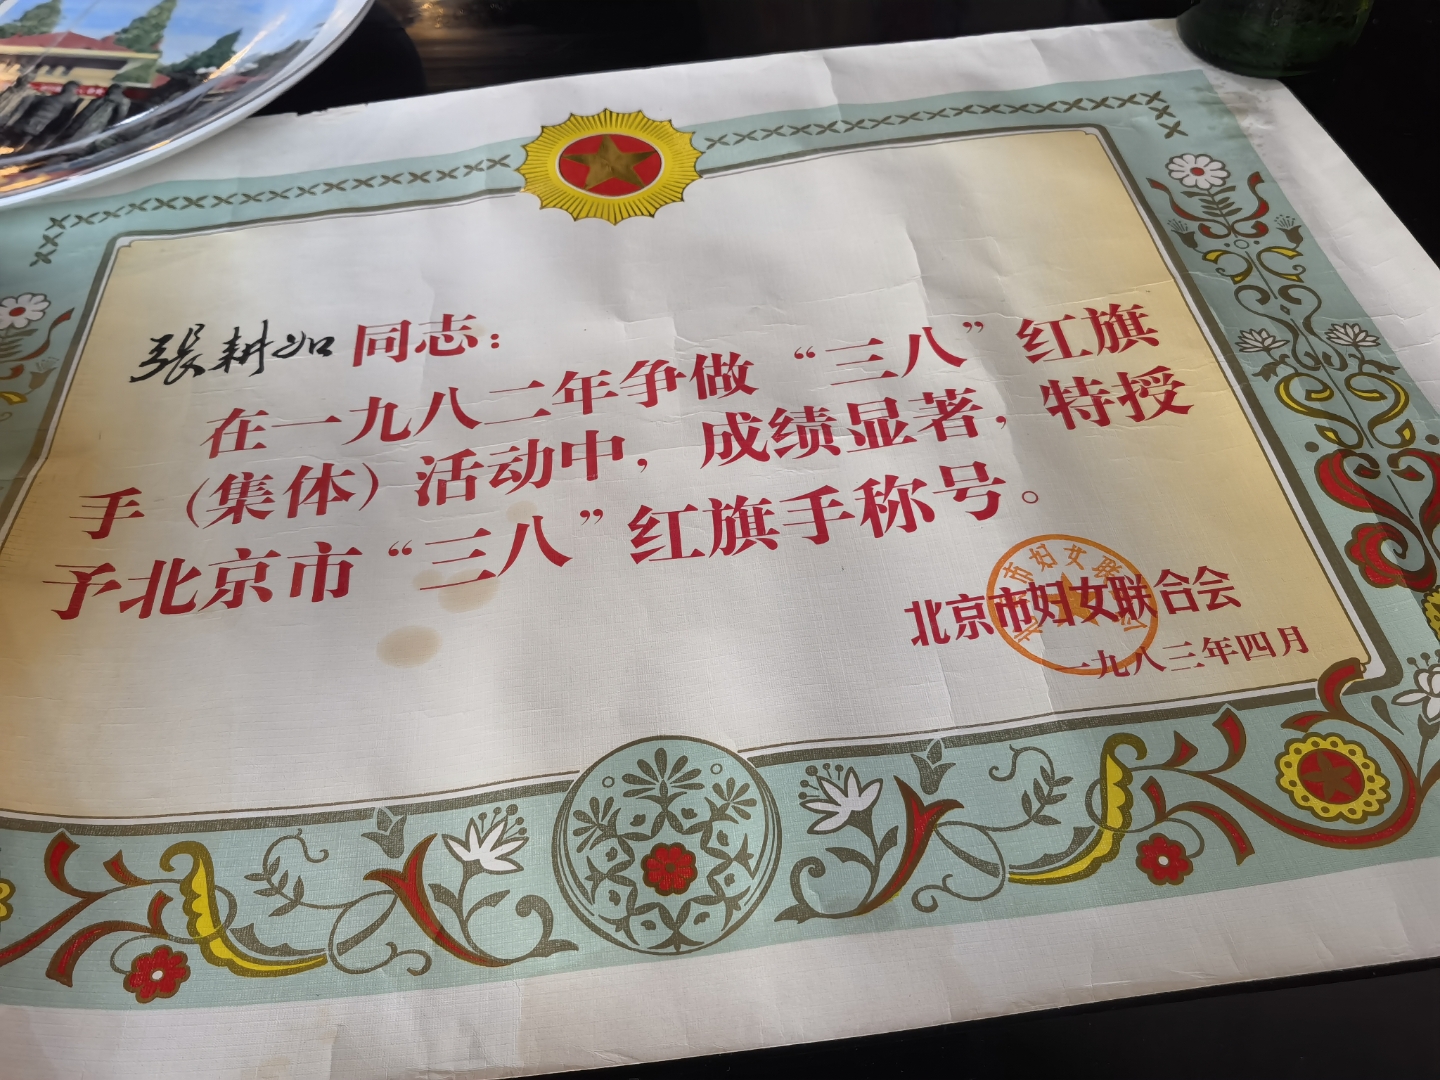 張耕如同志：
在一九八二年争做“三八”红旗
手（集体）活动中，成绩显著，特授
予北京市“三八”红旗手称号。
北京市妇女联合会
一九八三年四月
市妇女联